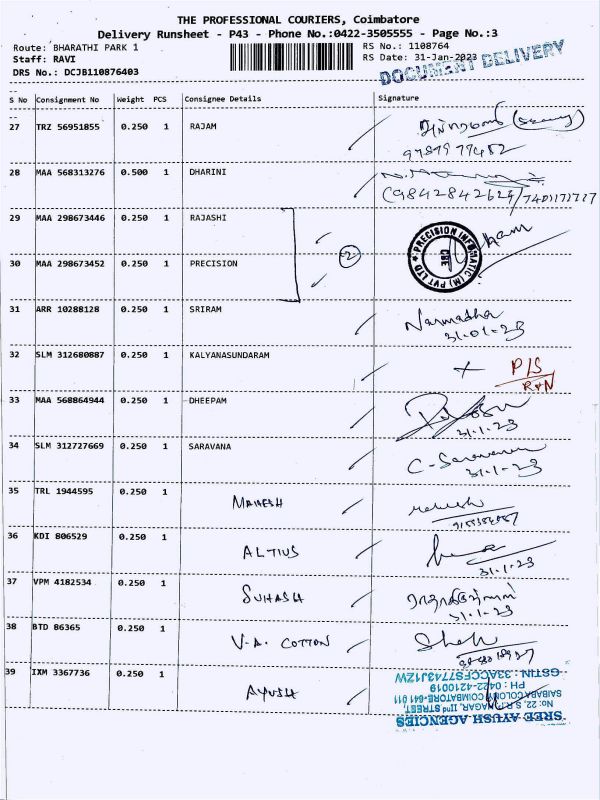 THE PROFESSIONAL COURIERS, Coimbatore
Delivery Runsheet - P43 - Phone No.:0422-3505555 - Page No.:3
Route: BHARATHI PARK 1
RS No.: 1108764
Staff: RAVI
RS Date: 31-Jan-2023
DRS No.: DCJB110876403
DOCUMENT DELIVERY
S No Consignment No Weight PCS Consignee Details Signature
27 TRZ 56951855 0.250 1 RAJAM
9787977452
28 MAA 568313276 0.500 1 DHARINI
(9842842624/7401171717
29 MAA 298673446 0.250 1 RAJASHI
PRECISION INFOMATIC (M) PVT LTD
CBE
2
30 MAA 298673452 0.250 1 PRECISION
31 ARR 10288128 0.250 1 SRIRAM Narmadha
31-01-23
32 SLM 312680887 0.250 1 KALYANASUNDARAM P/S
33 MAA 568864944 0.250 1 DHEEPAM
31-1-23
34 SLM 312727669 0.250 1 SARAVANA C-Saravanan
31-1-23
35 TRL 1944595 0.250 1 MAHESH
36 KDI 806529 0.250 1 ALTIUS
31-1-23
37 VPM 4182534 0.250 1 SUHASH
31-1-23
38 BTD 86365 0.250 1 V.A. COTTON
39 IXM 3367736 0.250 1 AYUSH
SREE AYUSH AGENCIES
No: 22, S.R.P. NAGAR, IInd STREET,
SAIBABA COLONY, COIMBATORE-641 011
PH : 0422-4210019
GSTIN : 33ACCFS7743J1ZW